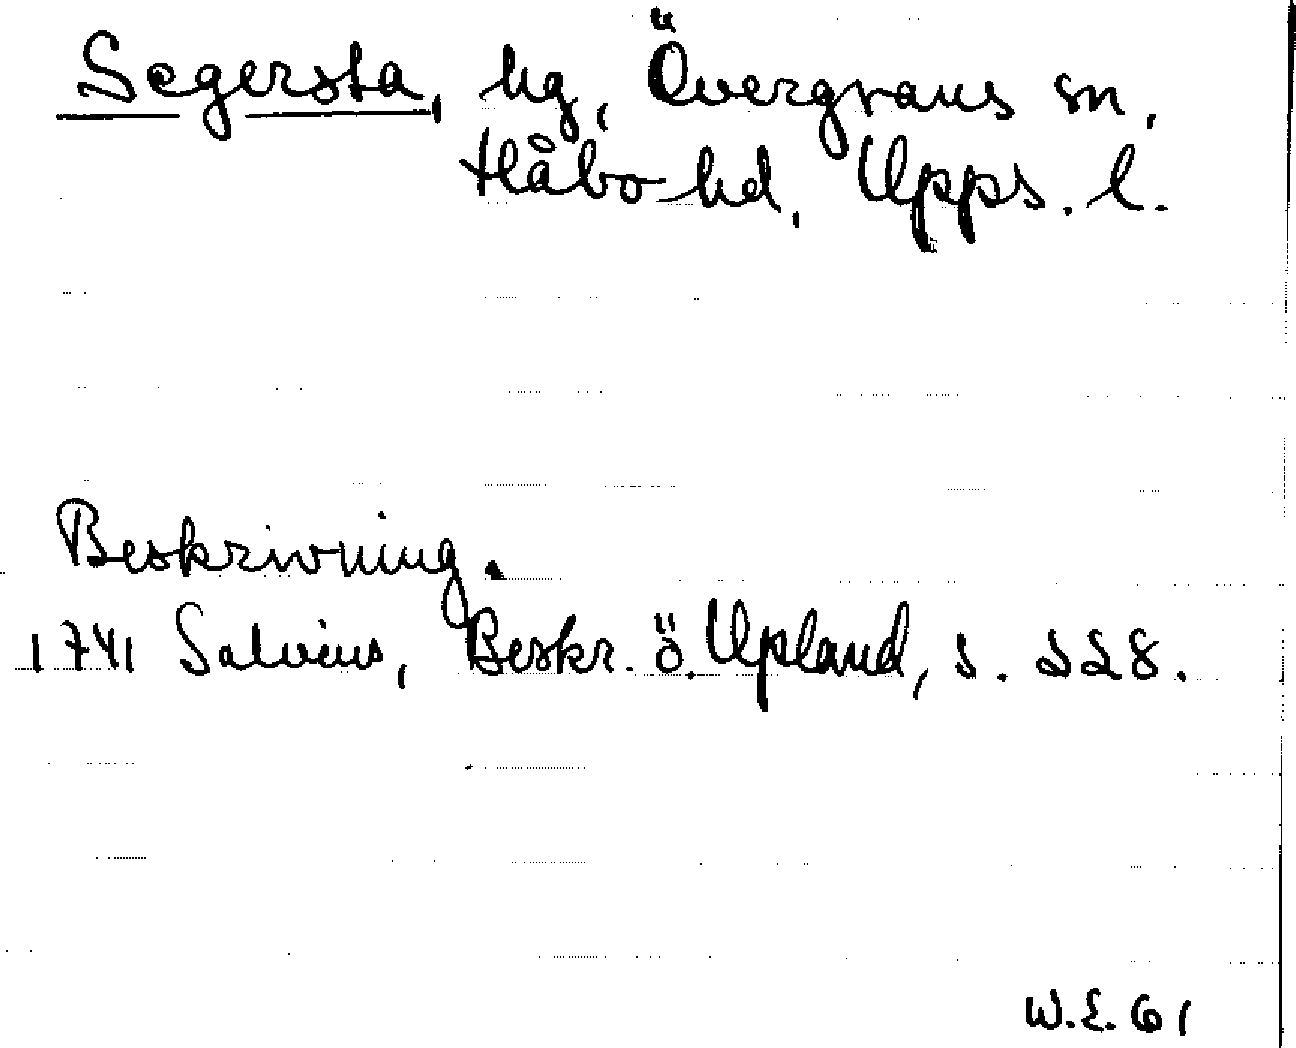 Segersta, hg, Övergrans sn,
Håbo hd, Upps. l.
Beskrivning.
1741 Salvius, Beskr. ö. Upland, s. 228.
W.E. 61